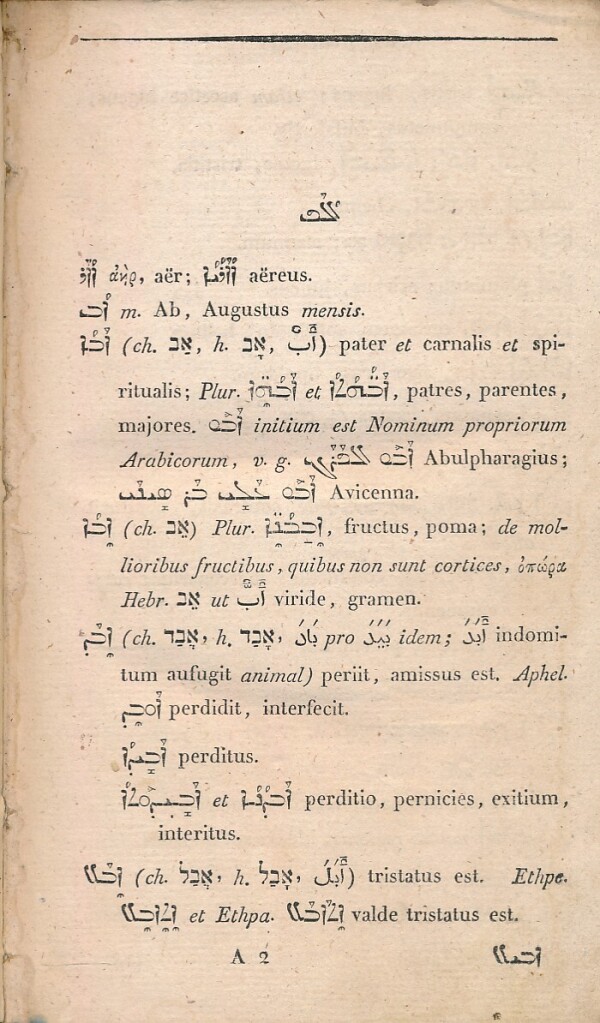 ܐܠܦ
ܐܐܪ ἀὴρ, aër; aëreus.
ܐܒ m. Ab, Augustus mensis.
ܐܒܐ (ch. אַב, h. אָב, أَبٌ) pater et carnalis et spi-
ritualis; Plur. ܐܒܗ̈ܐ et ܐܒܗ̈ܬܐ, patres, parentes,
majores. ܐܒܘ initium est Nominum propriorum
Arabicorum, v. g. ܐܒܘ Abulpharagius;
ܐܒܘ Avicenna.
ܐܒܐ (ch. אֵב) Plur. fructus, poma; de mol-
lioribus fructibus, quibus non sunt cortices, ὀπώρα
Hebr. אֵב ut أَبٌّ viride, gramen.
ܐܒܕ (ch. אֲבַד, h. אָבַד, بَادَ pro بَيَدَ idem; أَبَدَ indomi-
tum aufugit animal) periit, amissus est. Aphel.
ܐܘܒܕ perdidit, interfecit.
ܐܒܝܕܐ perditus.
ܐܒܝܕܘܬܐ et ܐܒܕܢܐ perditio, pernicies, exitium,
interitus.
ܐܒܠ (ch. אֲבַל, h. אָבַל, أَبَّلَ) tristatus est. Ethpe.
ܐܬܐܒܠ et Ethpa. ܐܬܐܒܠ valde tristatus est.
A 2 ܐܒܝܠ